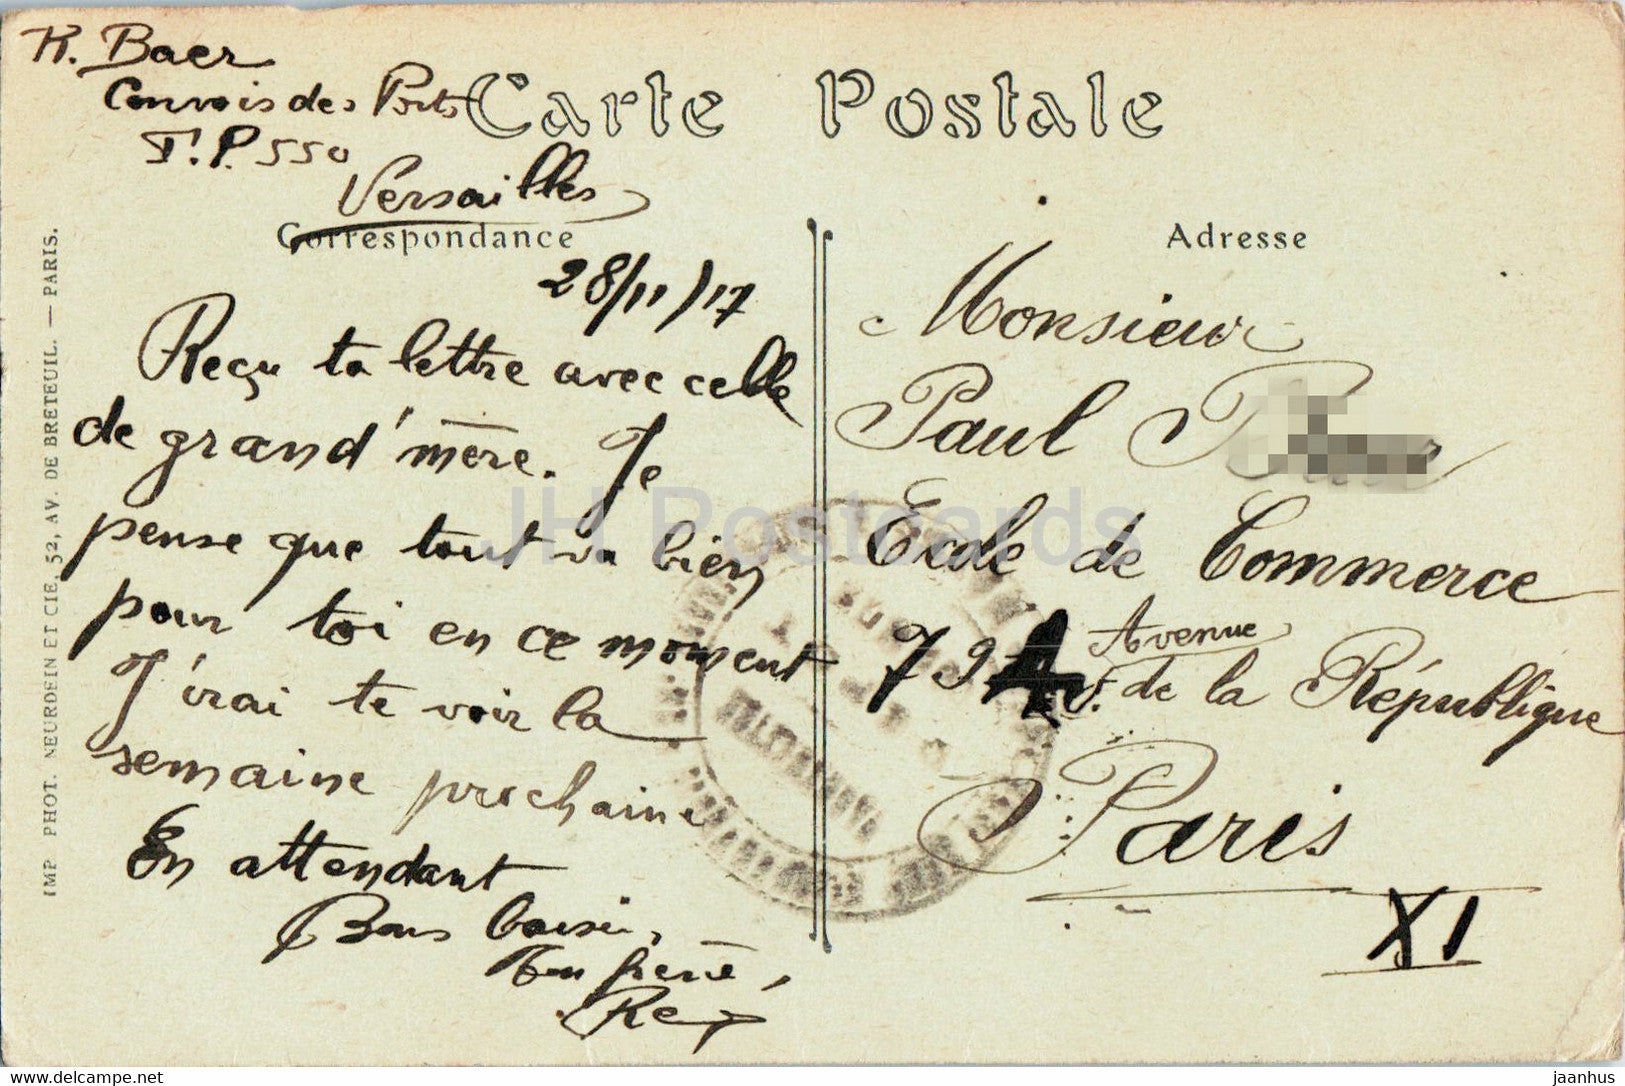 R. Baer
Convois des Ports
T.P. 550
Versailles
Carte Postale
Correspondance
Adresse
28/11/17
Reçu ta lettre avec celle
de grand'mère. Je
pense que tout va bien
pour toi en ce moment
J'irai te voir la
semaine prochaine
En attendant
Bons baisers
Ton frère,
Monsieur
Paul
Ecole de Commerce
79 Avenue
de la République
Paris
XI
IMP PHOT. NEURDEIN ET CIE, 52, AV. DE BRETEUIL. — PARIS.
JH Postcards
Ref: PFRWW-211219
jaanhus